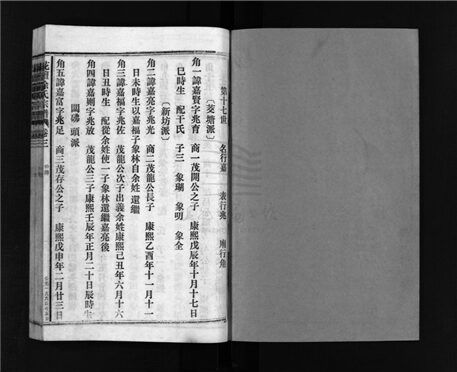 第十七世 名行嘉 表行兆 廟行角
〔茭塘派〕
角一諱嘉賢字兆育 商一茂開公之子 康熙戊辰年十月十七日
巳時生 配干氏 子三 象瑚 象明 象全
〔新坊派〕
角二諱嘉亮字兆光 商二茂龍公長子 康熙乙酉年十一月十一
日未時生以嘉福子象林自余姓還繼
角三諱嘉福字兆佐 茂龍公次子出義余姓康熙己丑年六月十六
日丑時生 配從余姓使一子象林還繼嘉亮後
角四諱嘉則字兆放 茂龍公三子康熙壬辰年正月二十日辰時生
闗磜頭派
角五諱嘉富字兆足 商三茂存公之子 康熙戊申年二月廿三日
氏宗 卷三